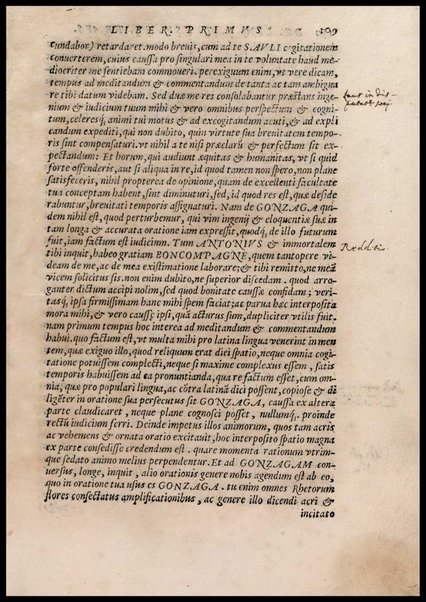 LIBER PRIMVS 109
cundabor) retardaret. modo breuis, cum ad te SAVLI cogitationem
conuerterem, cuius caussa pro singulari mea in te voluntate haud me-
diocriter me sentiebam commoueri. perexiguum enim, vt vere dicam,
tempus ad meditandum & commentandum de tanta ac tam ambigua
re tibi datum videbam. Sed duæ me res consolabantur præstans inge-
nium & iudicium tuum mihi & vero omnibus perspectum & cogni-
tum, celeresq́ animi tui motus & ad excogitandum acuti, & ad expli
candum expediti, qui non dubito, quin virtute sua breuitatem tempo-
ris sint compensaturi. vt nihil a te nisi præclarū & perfectum sit ex-
pectandum: Et horum, qui audiunt æquitas & humanitas, vt si quid
forte offenderis, aut si aliqua in re, id quod tamen non spero, non plane
satisfeceris, nihil propterea de opinione, quam de excellenti facultate
tua conceptam habent, sint diminuturi, sed, id quod res est, quæ deside
rabuntur, breuitati temporis assignaturi. Nam de GONZAGA qui-
dem nihil est, quod perturbemur, qui vim ingenij & eloquentiæ suæ in
tam longa & accurata oratione iam expressit, quodq́, de illo futurum
fuit, iam factum est iudicium. Tum ANTONIVS & immortalem
tibi inquit, habeo gratiam BONCOMPAGNE, quem tantopere vi-
deam de me, ac de mea existimatione laborare; & tibi remisto, ne mea
vicem solicitus sis. non enim dubito, ne superior discedam. quod arro-
ganter dictum accipi nolim, sed quod bonitate caussæ confidam; veri-
tasq́, ipsa firmissimam hanc mihi spem faciat; ac parua hæc interposita
mora mihi, & vero caussę ipsi, quā acturus sum, dupliciter vtilis fuit.
nam primum tempus hoc interea ad meditandum & commentandum
habui. quo factum est, vt multa mihi pro latina lingua venerint in men
tem, quæ exiguo illo, quod reliquum erat diei spatio, neque omnia cogi-
tatione potuissem complecti, neque si maxime complexus essem, satis
temporis habuissem ad ea pronuntianda, qua re factum esset, cum om-
nia, quæ pro populari lingua, ac cōtra latinā dici possent, copiose & di
ligēter in oratione sua persecutus sit GONZAGA, caussa ex altera
parte claudicaret, neque plane cognosci posset, nullumq́. proinde
rectū iudicium ferri. Deinde impetus illos animorum, quos tam acris
ac vehemens & ornata oratio excitauit, hoc interposito spatio magna
ex parte consedisse credendum est. quare momenta rationum vtrim-
que sedato animo melius perpendentur. Et ad GONZAGAM con-
uersus, longe, inquit, alio orationis genere nobis agendum est ab eo,
quo in oratione tua vsus es GONZAGA. tu enim omnes Rhetorum
flores consectatus amplificationibus, ac genere illo dicendi acri &
incitato